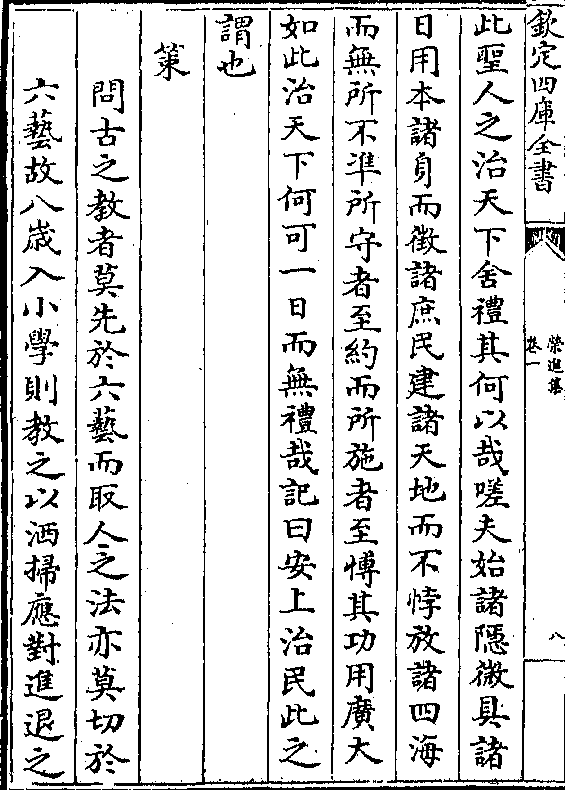 欽定四庫全書
榮進集
卷一
八
此聖人之治天下舍禮其何以哉嗟夫始諸隠微具諸
日用本諸身而徵諸庶民建諸天地而不悖放諸四海
而無所不準所守者至約而所施者至博其功用廣大
如此治天下何可一日而無禮哉記曰安上治民此之
謂也
策
問古之教者莫先於六藝而取人之法亦莫切於
六藝故八歳入小學則教之以洒掃應對進退之